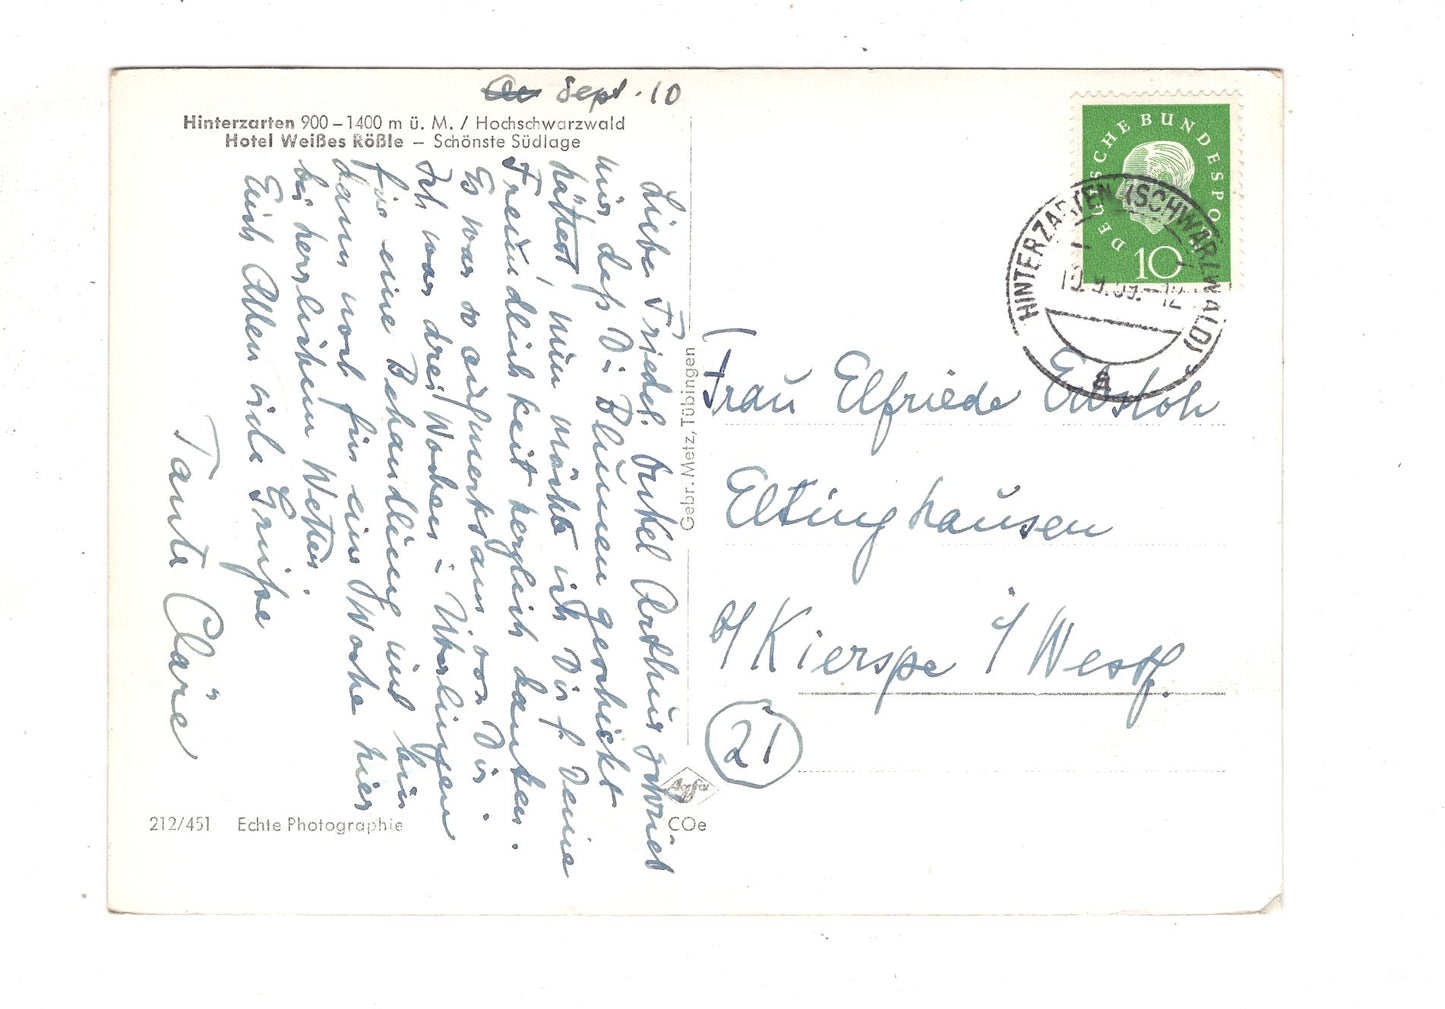 Sept. 10
Hinterzarten 900–1400 m ü. M. / Hochschwarzwald
Hotel Weißes Rößle – Schönste Südlage
Liebe Friedel, Onkel Arthur schrieb
mir daß Du Blumen geschickt
hättest, nun möchte ich Dir f. Deine
Freundlichkeit herzlich danken.
Es war so aufmerksam von Dir.
Ich war drei Wochen i. Überlingen
für eine Behandlung und bin
dann noch für eine Woche hier
bei herrlichem Wetter.
Euch Allen viele Grüße
Tante Cläre
Gebr. Metz, Tübingen
212/451 Echte Photographie
Agfa
COe
DEUTSCHE BUNDESPOST
10
HINTERZARTEN (SCHWARZWALD)
10.9.59.–12
a
Frau Elfriede
Eltinghausen
b/ Kierspe i/ Westf.
21